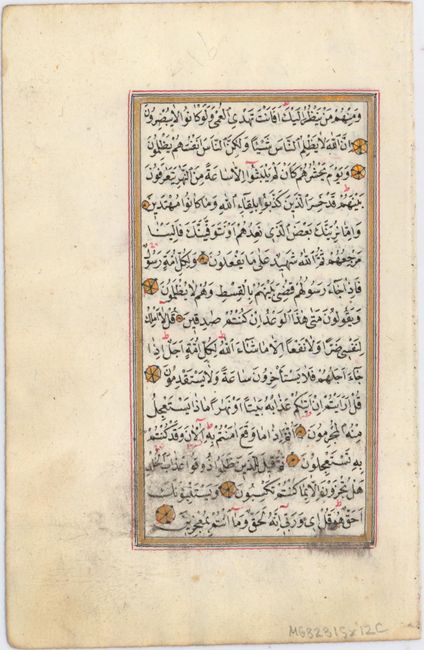 ومنهم من ينظر اليك افانت تهدي العمي ولو كانوا لا يبصرون
ان الله لا يظلم الناس شيئا ولكن الناس انفسهم يظلمون
ويوم يحشرهم كان لم يلبثوا الا ساعة من النهار يتعارفون
بينهم قد خسر الذين كذبوا بلقاء الله وما كانوا مهتدين
واما نرينك بعض الذي نعدهم او نتوفينك فالينا
مرجعهم ثم الله شهيد على ما يفعلون ولكل امة رسول
فاذا جاء رسولهم قضي بينهم بالقسط وهم لا يظلمون
ويقولون متى هذا الوعد ان كنتم صدقين قل لا املك
لنفسي ضرا ولا نفعا الا ما شاء الله لكل امة اجل اذا
جاء اجلهم فلا يستأخرون ساعة ولا يستقدمون
قل ارايتم ان اتيكم عذابه بياتا او نهارا ماذا يستعجل
منه المجرمون اثم اذا ما وقع امنتم به آلان وقد كنتم
به تستعجلون ثم قيل للذين ظلموا ذوقوا عذاب الخلد
هل تجزون الا بما كنتم تكسبون ويستنبؤنك
احق هو قل اي وربي انه لحق وما انتم بمعجزين